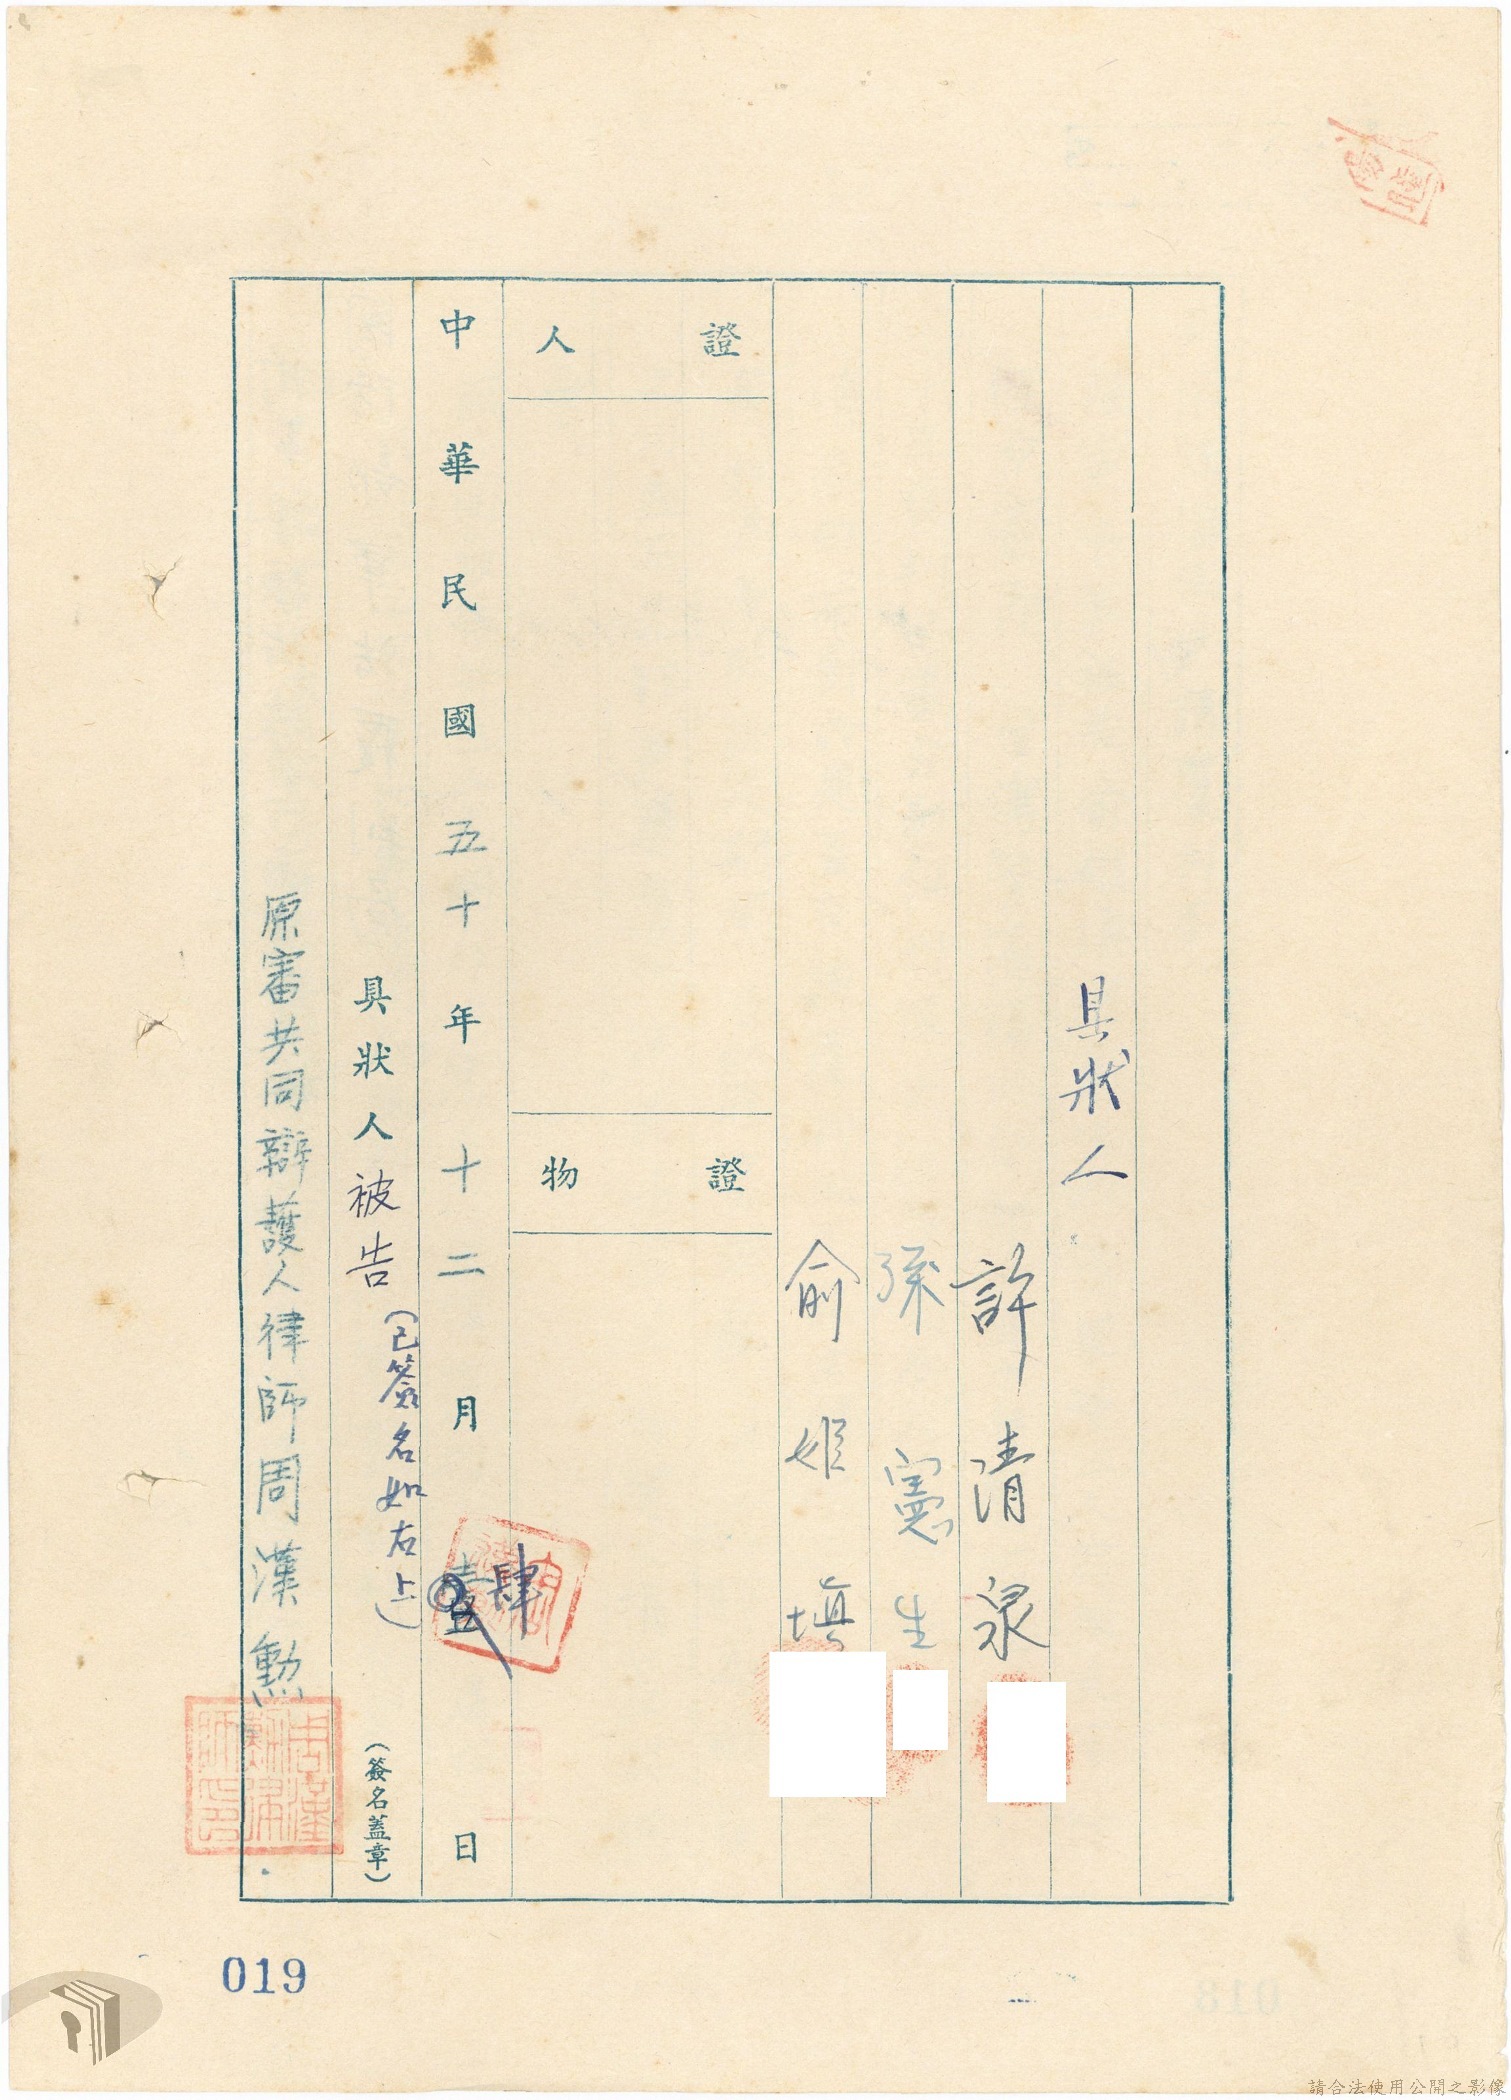 具狀人
許清泉
孫憲生
俞姬填
證人
證物
中華民國五十年十二月壹肆日
具狀人被告(已簽名如右上)(簽名蓋章)
原審共同辯護人律師周漢勲
周漢勲律師印
019
請合法使用公開之影像